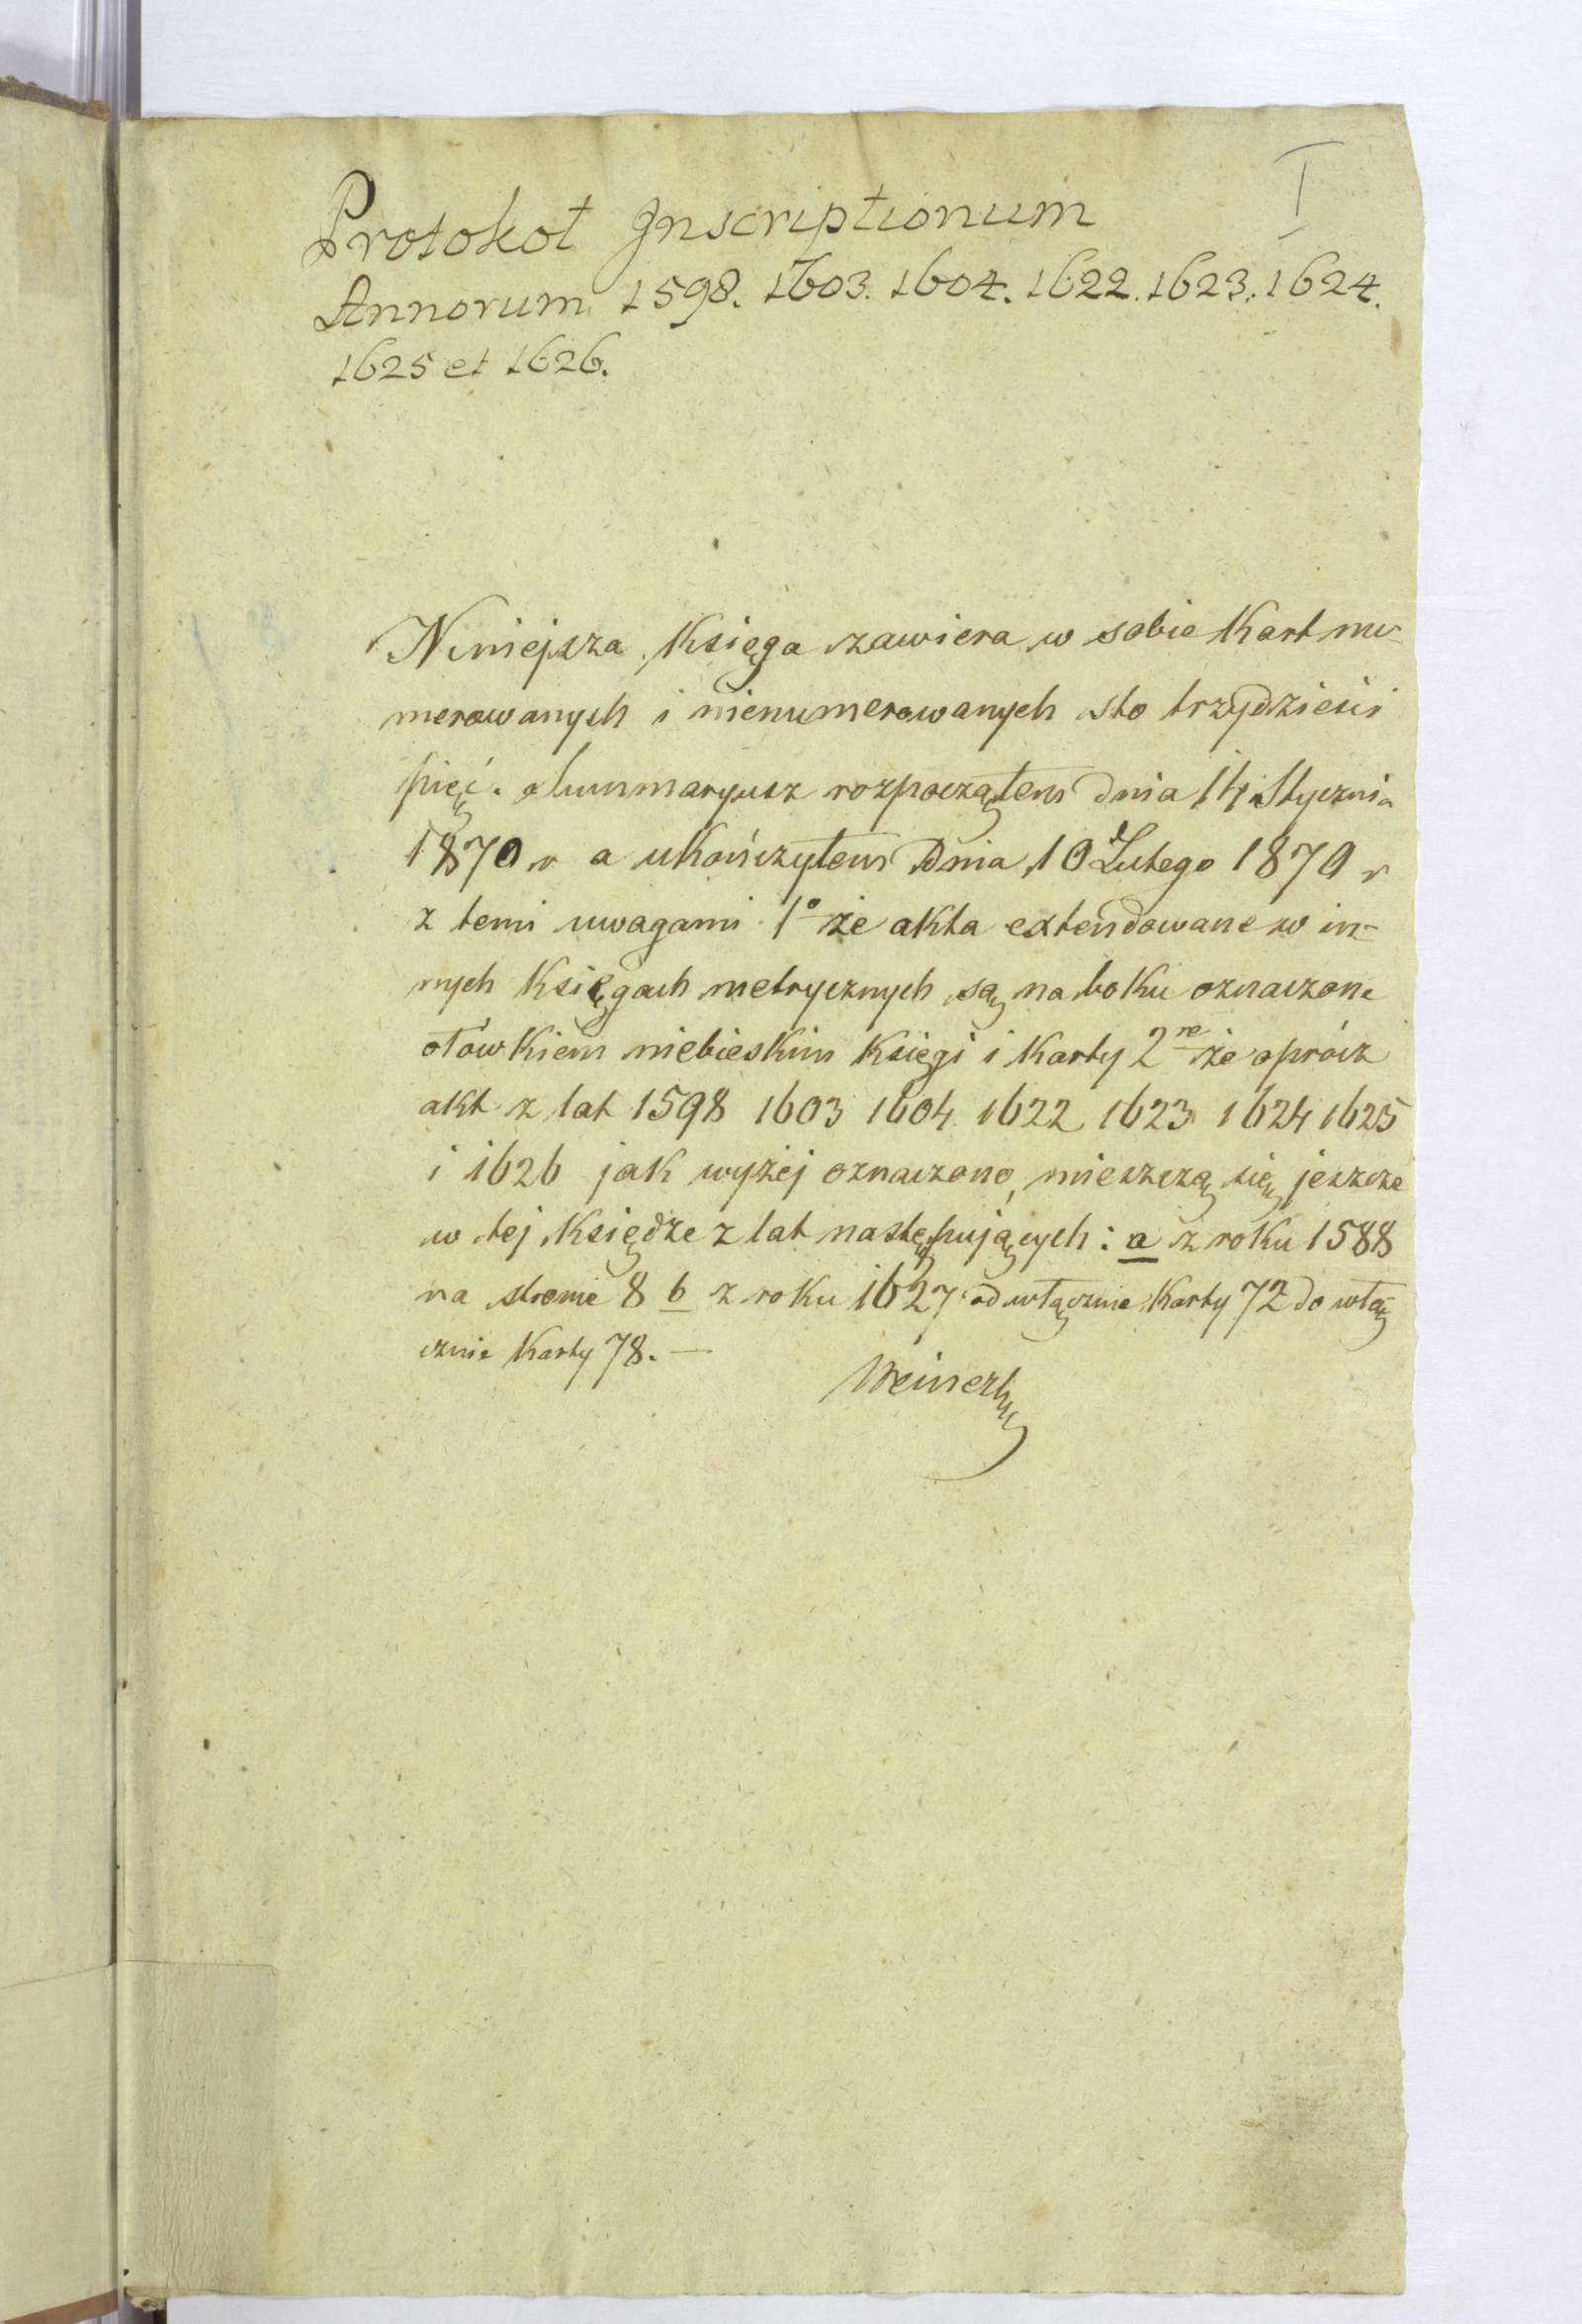 I
Protokoł Inscriptionum
Annorum 1598. 1603. 1604. 1622. 1623. 1624.
1625 et 1626.
Niniejsza Księga zawiera w sobie Kart nu-
merowanych i nienumerowanych sto trzydzieści
pięć. Summaryusz rozpocząłem dnia 14 Stycznia
1870 r a ukończyłem Dnia 10 Lutego 1870 r
z temi uwagami 1o że akta extendowane w in-
nych Księgach metrycznych są na boku oznaczone
ołówkiem niebieskim Księgi i Karty 2re że oprócz
akt z lat 1598 1603 1604 1622 1623 1624 1625
i 1626 jak wyżej oznaczono, mieszczą się jeszcze
w tej Księdze z lat następujących: a z roku 1588
na stronie 8 b z roku 1627 od włącznie Karty 72 do włą
cznie Karty 78. —
Weinert